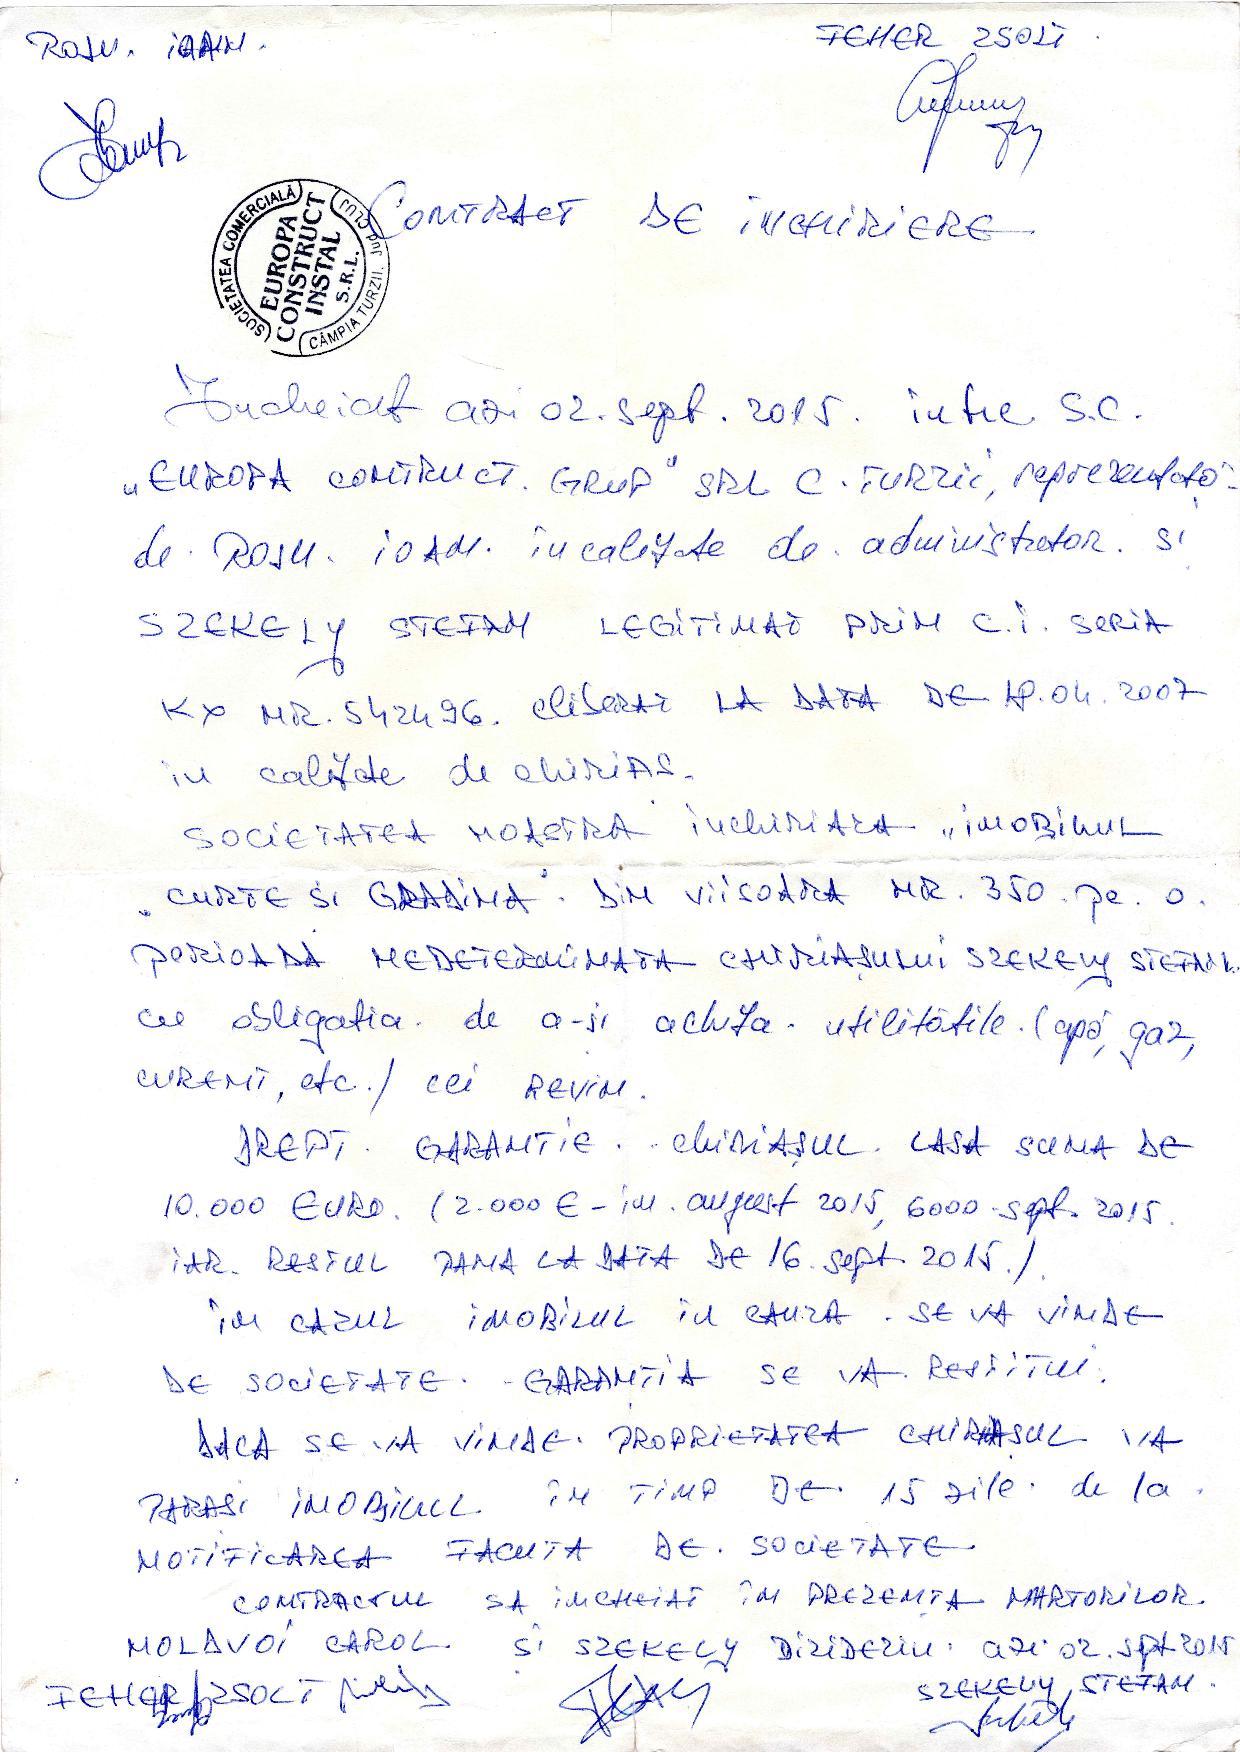 ROSU. IOAN.
FEHER ZSOLT
SOCIETATEA COMERCIALĂ
EUROPA
CONSTRUCT
INSTAL
S.R.L.
CÂMPIA TURZII, jud. CLUJ
CONTRACT DE INCHIRIERE
Incheiat azi 02. sept. 2015. intre S.C.
„EUROPA CONTRUCT. GRUP" SRL C. TURZII, reprezentată
de ROSU. IOAN. in calitate de administrator. si
SZEKELY STEFAN LEGITIMAT PRIN C.I. SERIA
KX NR. 542496. eliberat LA DATA DE 18.04.2007
in calitate de chirias.
SOCIETATEA NOASTRA inchiriaza „IMOBILUL
„CURTE SI GRADINA". DIN VIISOARA NR. 350. pe. o.
PERIOADA NEDETERMINATA CHIRIAȘULUI SZEKELY STEFAN.
cu obligatia. de a-si achita. utilitătile. (apă, gaz,
CURENT, etc.) cei REVIN.
DREPT. GARANTIE. CHIRIAȘUL. LASA SUMA DE
10.000 EURO. (2.000 € - in. august 2015, 6000 - sept. 2015.
IAR. RESTUL PANA LA DATA DE 16. sept. 2015.).
IN CAZUL IMOBILUL IN CAUZA. SE VA VINDE
DE SOCIETATE. GARANTIA SE VA. RESTITUI.
DACA SE VA VINDE. PROPRIETATEA CHIRIASUL VA
PARASI IMOBILUL. IN TIMP DE 15 zile. de la.
NOTIFICAREA FACUTA DE. SOCIETATE
CONTRACTUL SA INCHEIAT IN PREZENTA MARTORILOR.
MOLDVOI CAROL. SI SZEKELY DIZIDERIU. azi 02. sept 2015
FEHER ZSOLT
SZEKELY STEFAN.